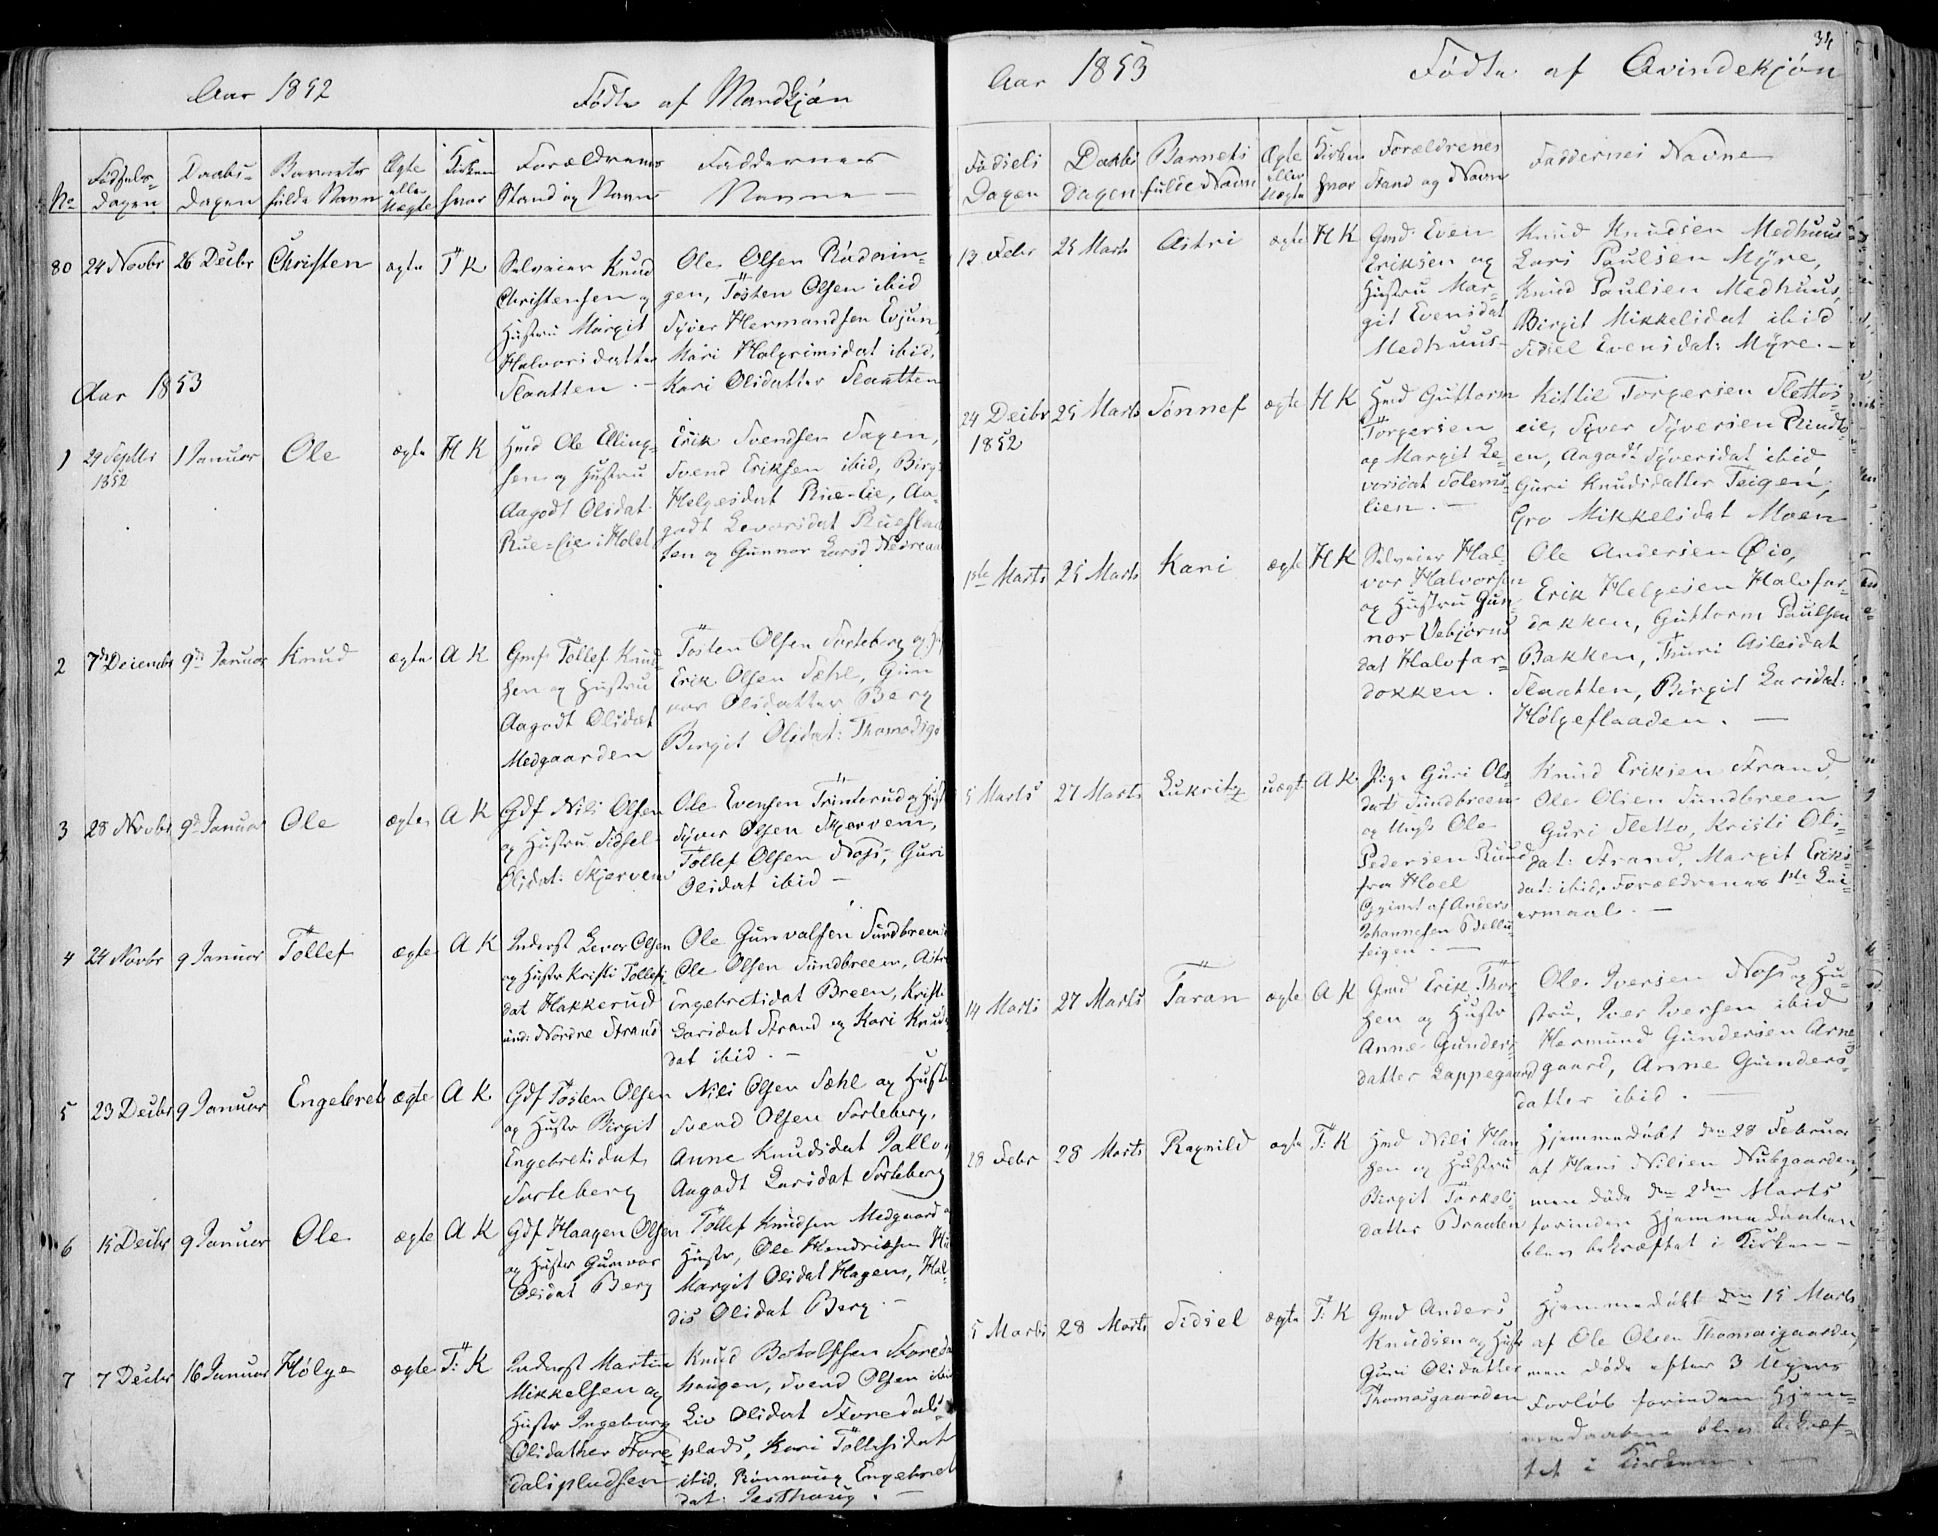 Aar 1852
Fødte af Mandkjøn
No
Fødsels-
dagen
Daabs-
dagen
Barnets
fulde Navn
Ægte
eller
Uægte
Kirken
hvor
Forældrenes
Stand og Navn
Faddernes
Navne
80 24 Novbr 26 Decbr Christen ægte T K
Selveier Knud
Christensen og
Hustru Margit
Halvorsdatter
Slaatten.
Ole Olsen Rødnin-
gen, Tosten Olsen ibid
Syver Hermandsen Evjun,
Mari Halgrimsdat ibid,
Kari Olsdatter Slaatten
Aar 1853
1 29 Septbr
1852
1 Januar Ole ægte H K
Hmd Ole Elling-
sen og Hustru
Aagodt Olsdat
Rue-Eie i Holet
Erik Svendsen Sagen,
Svend Eriksen ibid, Birgit
Helgesdat Rue-Eie, Aa-
godt Levorsdat Rueflad
ten og Gunnor Larsd Nedreaa
2 7de Decembr 9de Januar Knud ægte A K
Gmf Tollef Knud-
sen og Hustru
Aagodt Olsdat
Medgaarden
Tosten Olsen Sorteberg og H
Erik Olsen Sæhl, Gun
vor Olsdatter Berg
Birgit Olsdat: Thomasg
3 28 Novbr 9de Januar Ole ægte A K
Gdf Nils Olsen
og Hustru Sidsel
Olsdat: Skjervem
Ole Evensen Trinterud og Hust
Syver Olsen Skjervem,
Tollef Olsen Noss, Guri
Olsdat ibid
4 24 Novbr 9 Januar Tollef ægte A K
Inderst Levor Olsen
og Hustr Kristi Tollefs
dat Hakkerud
und: Nordre Strand
Ole Gunvalsen Sundbreen
Ole Olsen Sundbreen, Astri
Engebretsdat Breen, Kristi
Larsdat Strand og Kari Knuds
dat ibid.
5 23 Decbr 9 Januar Engebret ægte A K
Gdf Tosten Olsen
og Hustr Birgit
Engebretsdat
Sorteberg
Nils Olsen Sæhl og Hustr
Svend Olsen Sorteberg,
Anne Knudsdat Jallo
Aagodt Larsdat Sorteberg
6 15 Decbr 9 Januar Ole ægte A K
Gdf Haagen Olsen
og Hustr Gunvor
Olsdat Berg
Tollef Knudsen Medgaard
Hustr, Ole Hendriksen
Margit Olsdat Hagen, Hal-
dis Olsdat Berg.
7 7 Decbr 16 Januar Hølge ægte T: K
Inderst Martin
Mikkelsen og
Hustr Ingeborg
Olsdather Store
dalspladsen
Knud Botolfsen Stored
haugen, Svend Olsen ibid
Liv Olsdat Storedals-
plads, Kari Tollefsdat
ibid, Rønnaug Engebret
dat: Jesthaug.
34
Aar 1853
Fødte af Qvindekjøn
Fødsels
Dagen
Daabs
Dagen
Barnets
fulde Navn
Ægte
eller
Uægte
Kirken
hvor
Forældrenes
Stand og Navn
Faddernes Navne
13 Febr 25 Marts Astri ægte H K
Gmd. Even
Eriksen og
Hustru Mar-
git Evensdat
Medhuus
Knud Knudsen Medhuus
Lars Paulsen Myre,
Knud Paulsen Medhuus,
Birgit Mikkelsdat ibid
Sidsel Evensdat: Myre.
24 Decbr
1852
25 Marts Sønnef ægte H K
Hmd Guttorm
Torgersen
og Margit Le-
vorsdat Solems-
lien.
Kittil Torgersen Slettos-
eie, Syver Syversen Rinds-
en, Aagodt Syversdat ibid
Guri Knudsdatter Teigen,
Gro Mikkelsdat Moen
1ste Marts 25 Marts Kari ægte H K
Selveier Hal-
vor Halvorsen
og Hustru Gun-
nor Vebjørns
dat Halvfar-
dokken.
Ole Andersen Øio,
Erik Helgesen Halvfar-
dokken, Guttorm Paulsen
Bakken, Thuri Aslesdat
Slaatten, Birgit Larsdat:
Hølgeflaaden.
5 Marts 27 Marts Lukrits uægte A K.
Pige Guri Ols
dat Sundbreen
og Ungk Ole
Pedersen Ruud
fra Hoel
Opgivet af Anders
Johannesen Bellu
teigen.
Knud Eriksen Strand,
Ole Olsen Sundbreen
Guri Sletto, Kristi Ols-
dat: Strand, Margit Eriks-
dat: ibid. Forældrenes 1ste Lei-
ermaal.
14 Marts 27 Marts Taran ægte A K
Gmd Erik Thor-
sen og Hustr
Anne Gunders-
datter Lappegaard
Ole Iversen Noss og Hu-
stru, Iver Iversen ibid
Hermund Gundersen Arne-
gaard, Anne Gunders-
datter ibid.
28 Febr 28 Marts Ragnild ægte T: K
Hmd Nils Han
sen og Hustru
Birgit Torkels
datter Braaten
Hjemmedøbt den 28 Februar
af Hans Nilsen Nubgaarden,
men døde den 2den Marts
forinden Hjemmedaaben
blev bekræftet i Kirken
5 Marts 28 Marts Sidsel ægte T: K
Gmd Anders
Knudsen og Hustr
Guri Olsdatter
Thomasgaarden
Hjemmedøbt den 15 Marts
af Ole Olsen Thomasgaarden,
men døde efter 3 Ugers
Forløb forinden Hjem-
medaaben blev bekræf-
tet i Kirken.